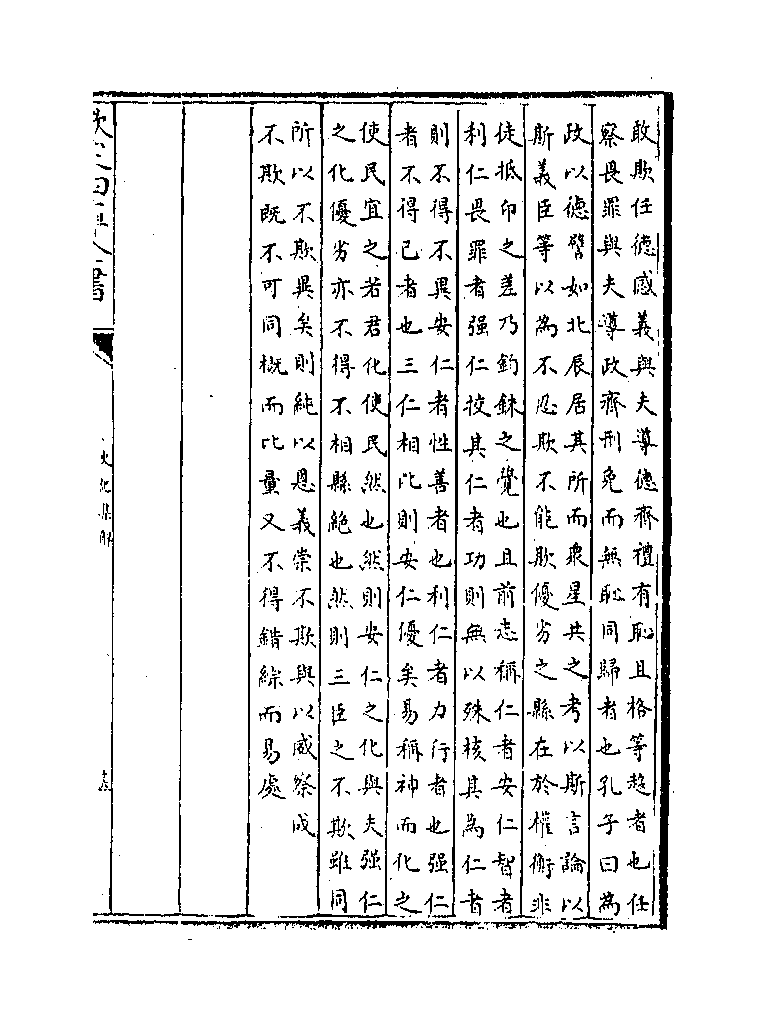 敢欺任德感義與夫導德齊禮有恥且格等趍者也任
察畏罪與夫導政齊刑免而無恥同歸者也孔子曰為
政以德譬如北辰居其所而衆星共之考以斯言論以
斯義臣等以為不忍欺不能欺優劣之縣在於權衡非
徒抵卬之差乃鈞銖之覺也且前志稱仁者安仁智者
利仁畏罪者强仁挍其仁者功則無以殊核其為仁者
則不得不異安仁者性善者也利仁者力行者也强仁
者不得已者也三仁相比則安仁優矣易稱神而化之
使民宜之若君化使民然也然則安仁之化與夫强仁
之化優劣亦不得不相縣絶也然則三臣之不欺雖同
所以不欺異矣則純以恩義崇不欺與以威察成
不欺既不可同概而比量又不得錯綜而易處
欽定四庫全書
史記集解